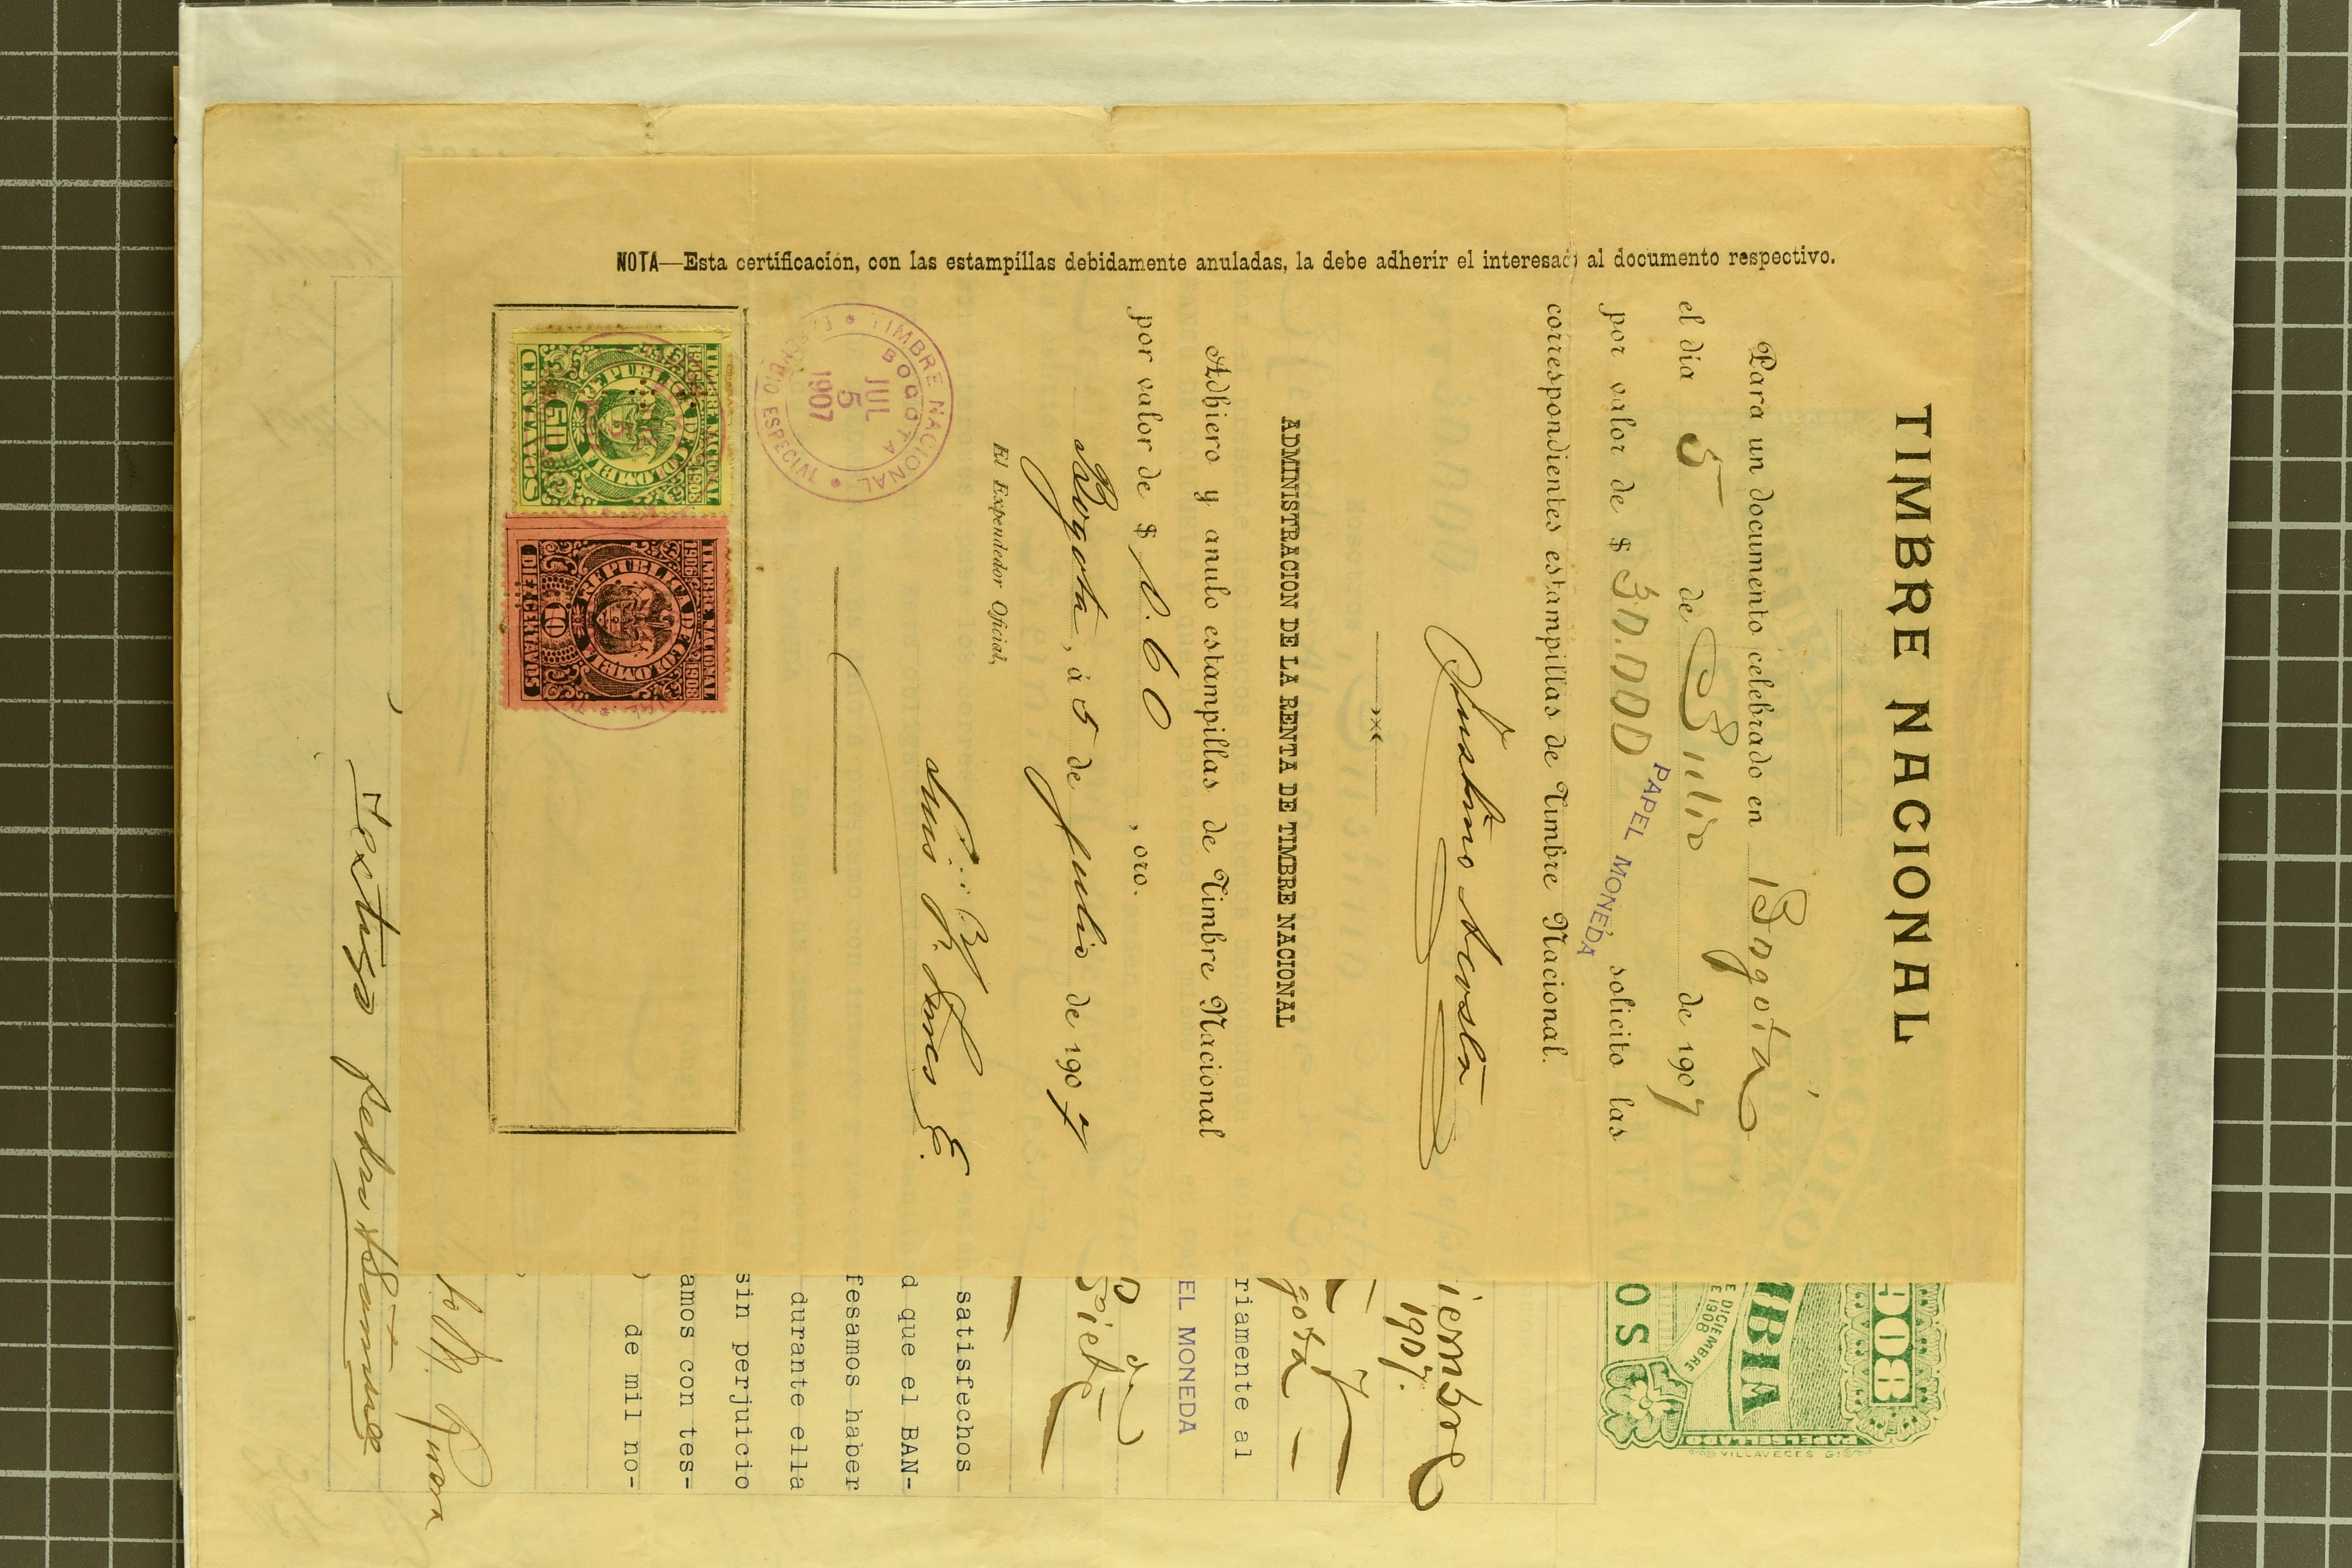 TIMBRE NACIONAL
Para un documento celebrado en Bogotá
el día 5 de Julio de 1907
por valor de $ 30.000 PAPEL MONEDA, solicito las
correspondientes estampillas de Timbre Nacional.
Justino Acosta
ADMINISTRACION DE LA RENTA DE TIMBRE NACIONAL
Adhiero y anulo estampillas de Timbre Nacional
por valor de $ 0.60, oro.
Bogotá, á 5 de Julio de 1907
El Expendedor Oficial,
Luis
TIMBRE NACIONAL
BOGOTA
JUL
5
1907
EXPENDIO ESPECIAL
TIMBRE NACIONAL
1906 1908
REPUBLICA DE COLOMBIA
50
CENTAVOS
TIMBRE NACIONAL
1906 1908
REPUBLICA DE COLOMBIA
10
DIEZ CENTAVOS
NOTA—Esta certificación, con las estampillas debidamente anuladas, la debe adherir el interesado al documento respectivo.
908
MBIA
E DICIEMBRE
E 1908
OS
PAPEL SELLADO
VILLAVECES
iembre
1907.
gotá
riamente al
EL MONEDA
Siete
satisfechos
d que el BAN-
fesamos haber
durante ella
sin perjuicio
amos con tes-
de mil no-
Testigo